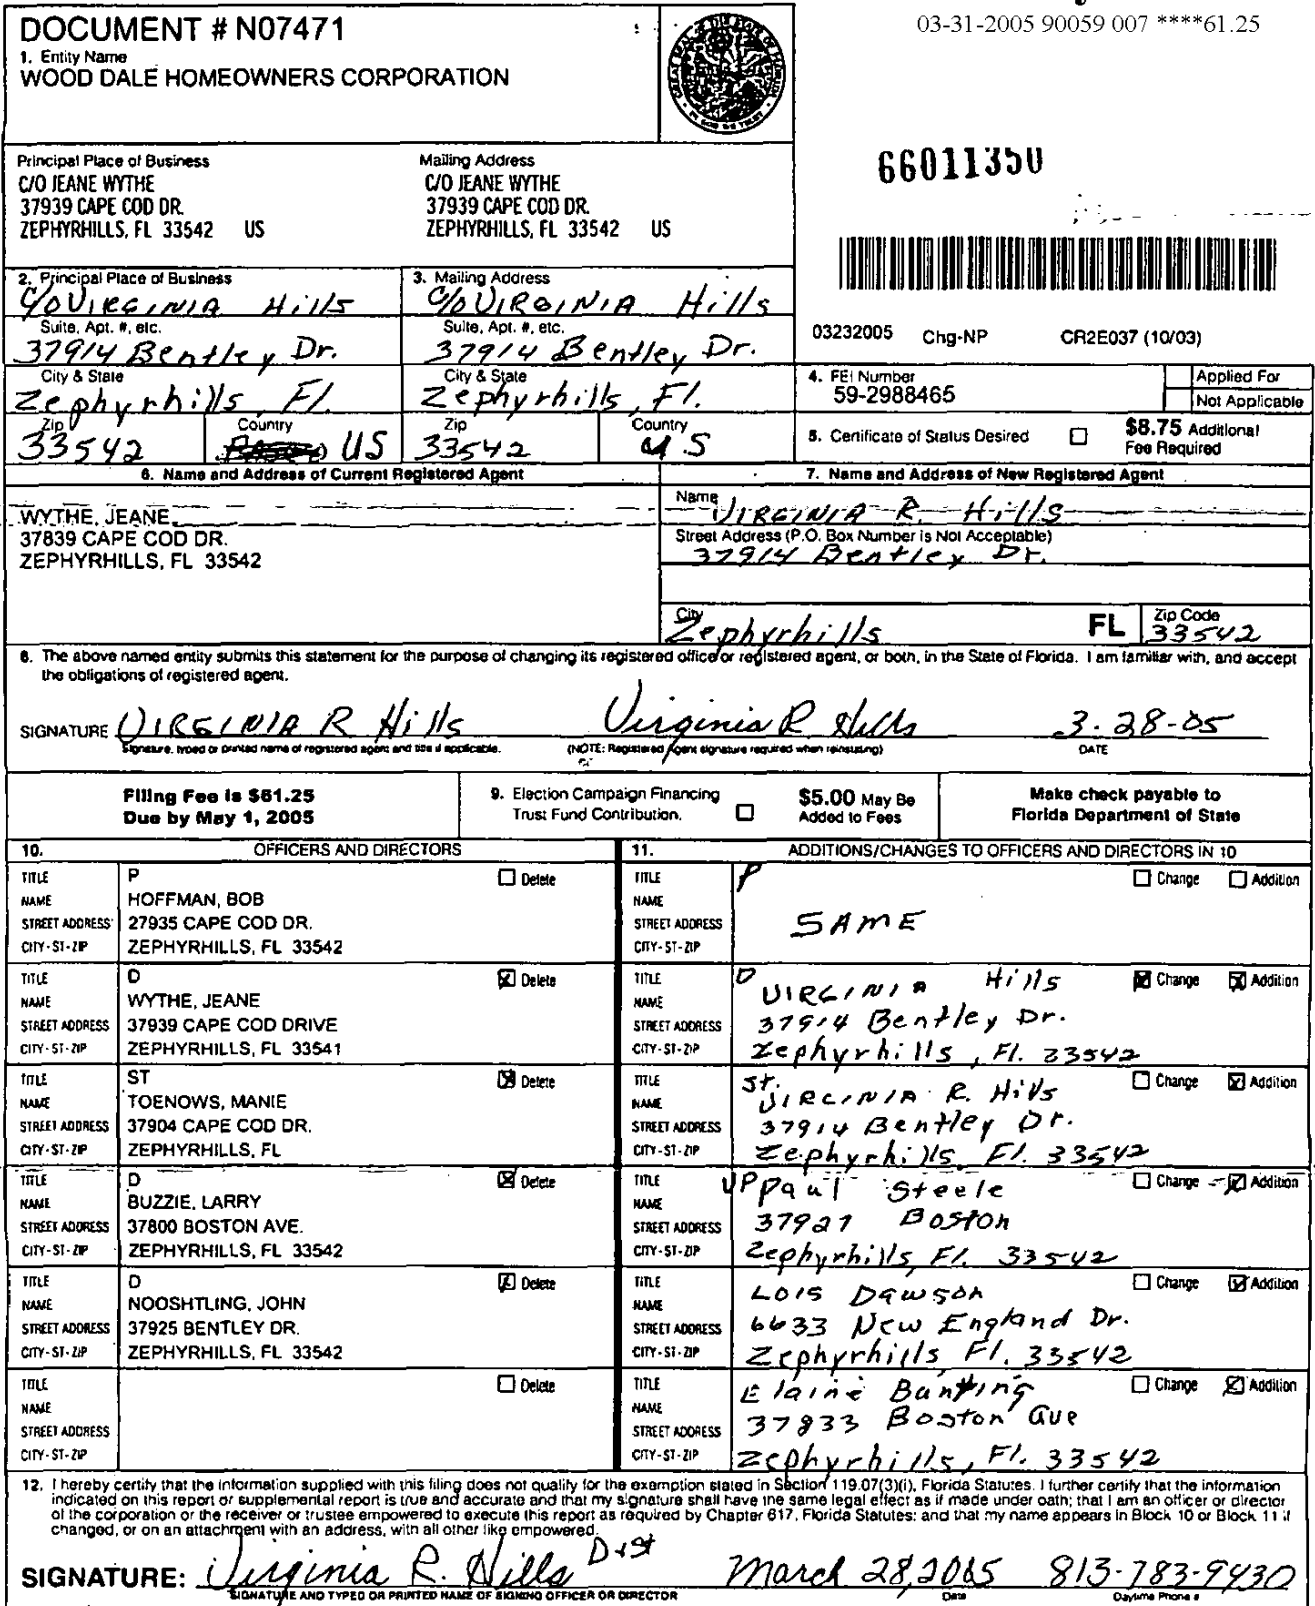 03-31-2005 90059 007 ****61.25
DOCUMENT # N07471
1. Entity Name
WOOD DALE HOMEOWNERS CORPORATION
66011350
Principal Place of Business
C/O JEANE WYTHE
37939 CAPE COD DR.
ZEPHYRHILLS, FL 33542 US
Mailing Address
C/O JEANE WYTHE
37939 CAPE COD DR.
ZEPHYRHILLS, FL 33542 US
2. Principal Place of Business
C/O VIRGINIA Hills
Suite, Apt. #, etc.
37914 Bentley Dr.
City & State
Zephyrhills, Fl.
Zip
33542
Country
US
3. Mailing Address
C/O VIRGINIA Hills
Suite, Apt. #, etc.
37914 Bentley Dr.
City & State
Zephyrhills, Fl.
Zip
33542
Country
U.S
03232005 Chg-NP CR2E037 (10/03)
4. FEI Number
59-2988465
Applied For
Not Applicable
5. Certificate of Status Desired
$8.75 Additional
Fee Required
6. Name and Address of Current Registered Agent
WYTHE, JEANE
37839 CAPE COD DR.
ZEPHYRHILLS, FL 33542
7. Name and Address of New Registered Agent
Name
VIRGINIA R. Hills
Street Address (P.O. Box Number is Not Acceptable)
37914 Bentley Dr.
City
Zephyrhills
FL
Zip Code
33542
8. The above named entity submits this statement for the purpose of changing its registered office or registered agent, or both, in the State of Florida. I am familiar with, and accept
the obligations of registered agent.
SIGNATURE VIRGINIA R Hills Virginia R Hills 3-28-05
Signature, typed or printed name of registered agent and title if applicable. (NOTE: Registered Agent signature required when reinstating) DATE
Filing Fee is $61.25
Due by May 1, 2005
9. Election Campaign Financing
Trust Fund Contribution.
$5.00 May Be
Added to Fees
Make check payable to
Florida Department of State
10. OFFICERS AND DIRECTORS
11. ADDITIONS/CHANGES TO OFFICERS AND DIRECTORS IN 10
TITLE P Delete
NAME HOFFMAN, BOB
STREET ADDRESS 27935 CAPE COD DR.
CITY-ST-ZIP ZEPHYRHILLS, FL 33542
TITLE P Change Addition
NAME
STREET ADDRESS SAME
CITY-ST-ZIP
TITLE D Delete
NAME WYTHE, JEANE
STREET ADDRESS 37939 CAPE COD DRIVE
CITY-ST-ZIP ZEPHYRHILLS, FL 33541
TITLE D Change Addition
NAME VIRGINIA Hills
STREET ADDRESS 37914 Bentley Dr.
CITY-ST-ZIP Zephyrhills, Fl. 33542
TITLE ST Delete
NAME TOENOWS, MANIE
STREET ADDRESS 37904 CAPE COD DR.
CITY-ST-ZIP ZEPHYRHILLS, FL
TITLE St. Change Addition
NAME VIRGINIA R. Hills
STREET ADDRESS 37914 Bentley Dr.
CITY-ST-ZIP Zephyrhills, Fl. 33542
TITLE D Delete
NAME BUZZIE, LARRY
STREET ADDRESS 37800 BOSTON AVE.
CITY-ST-ZIP ZEPHYRHILLS, FL 33542
TITLE VP Paul Steele Change Addition
NAME
STREET ADDRESS 37927 Boston
CITY-ST-ZIP Zephyrhills, Fl. 33542
TITLE D Delete
NAME NOOSHTLING, JOHN
STREET ADDRESS 37925 BENTLEY DR.
CITY-ST-ZIP ZEPHYRHILLS, FL 33542
TITLE Lois Dawson Change Addition
NAME
STREET ADDRESS 6633 New England Dr.
CITY-ST-ZIP Zephyrhills, Fl. 33542
TITLE Delete
NAME
STREET ADDRESS
CITY-ST-ZIP
TITLE Elaine Bunting Change Addition
NAME
STREET ADDRESS 37833 Boston Ave
CITY-ST-ZIP Zephyrhills, Fl. 33542
12. I hereby certify that the information supplied with this filing does not qualify for the exemption stated in Section 119.07(3)(i), Florida Statutes. I further certify that the information
indicated on this report or supplemental report is true and accurate and that my signature shall have the same legal effect as if made under oath; that I am an officer or director
of the corporation or the receiver or trustee empowered to execute this report as required by Chapter 617, Florida Statutes; and that my name appears in Block 10 or Block 11 if
changed, or on an attachment with an address, with all other like empowered.
SIGNATURE: Virginia R. Hills D+St March 28, 2005 813-783-9430
SIGNATURE AND TYPED OR PRINTED NAME OF SIGNING OFFICER OR DIRECTOR Date Daytime Phone #